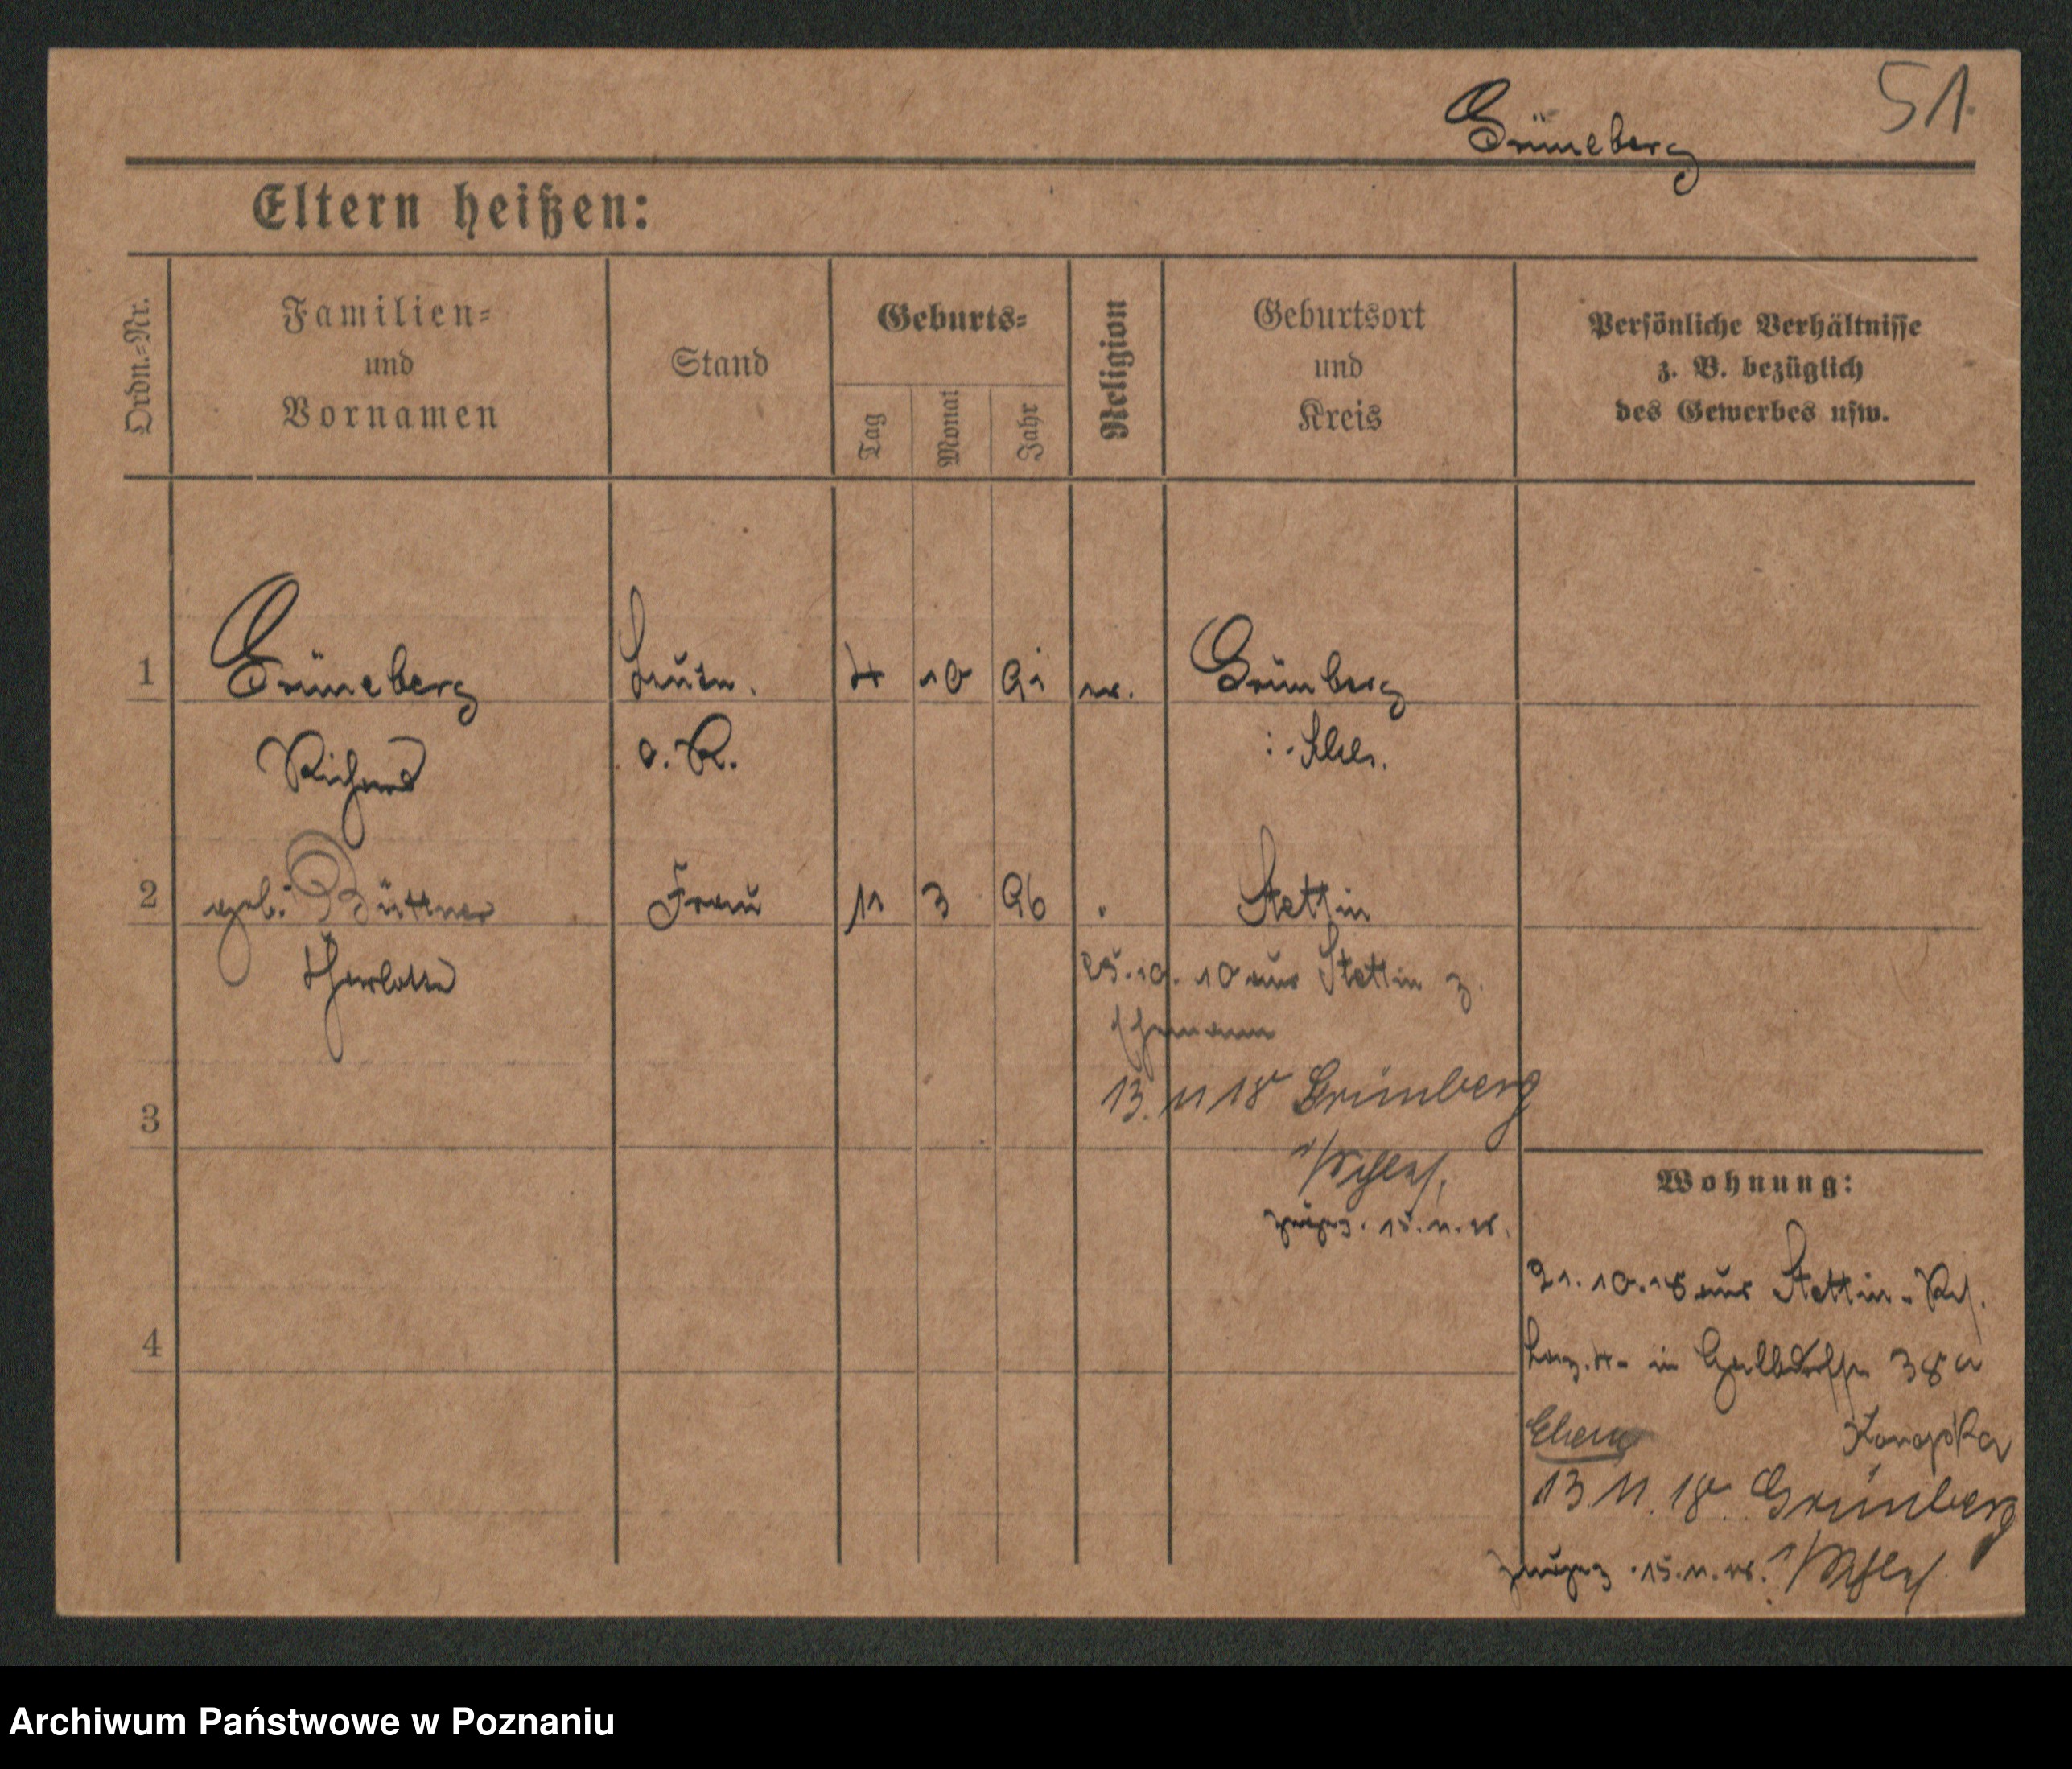 51
Grüneberg
Eltern heißen:
Ordn.-Nr.
Familien-
und
Vornamen
Stand
Geburts-
Tag
Monat
Jahr
Religion
Geburtsort
und
Kreis
Persönliche Verhältnisse
z. B. bezüglich
des Gewerbes usw.
1
Grüneberg
Leutn.
4 10 91
Grünberg
Richard
d. R.
i. Schles.
2
geb. Büttner
Frau
11 3 96
Stettin
Charlotte
25.10. aus Stettin z.
Ehemann
3
13. 11 18 Grünberg
i/Schles.
15.11.18.
Wohnung:
21.10.18 aus Stettin
4
in
Konopka
13. 11. 18. Grünberg
15.11.18. i/Schles
Archiwum Państwowe w Poznaniu